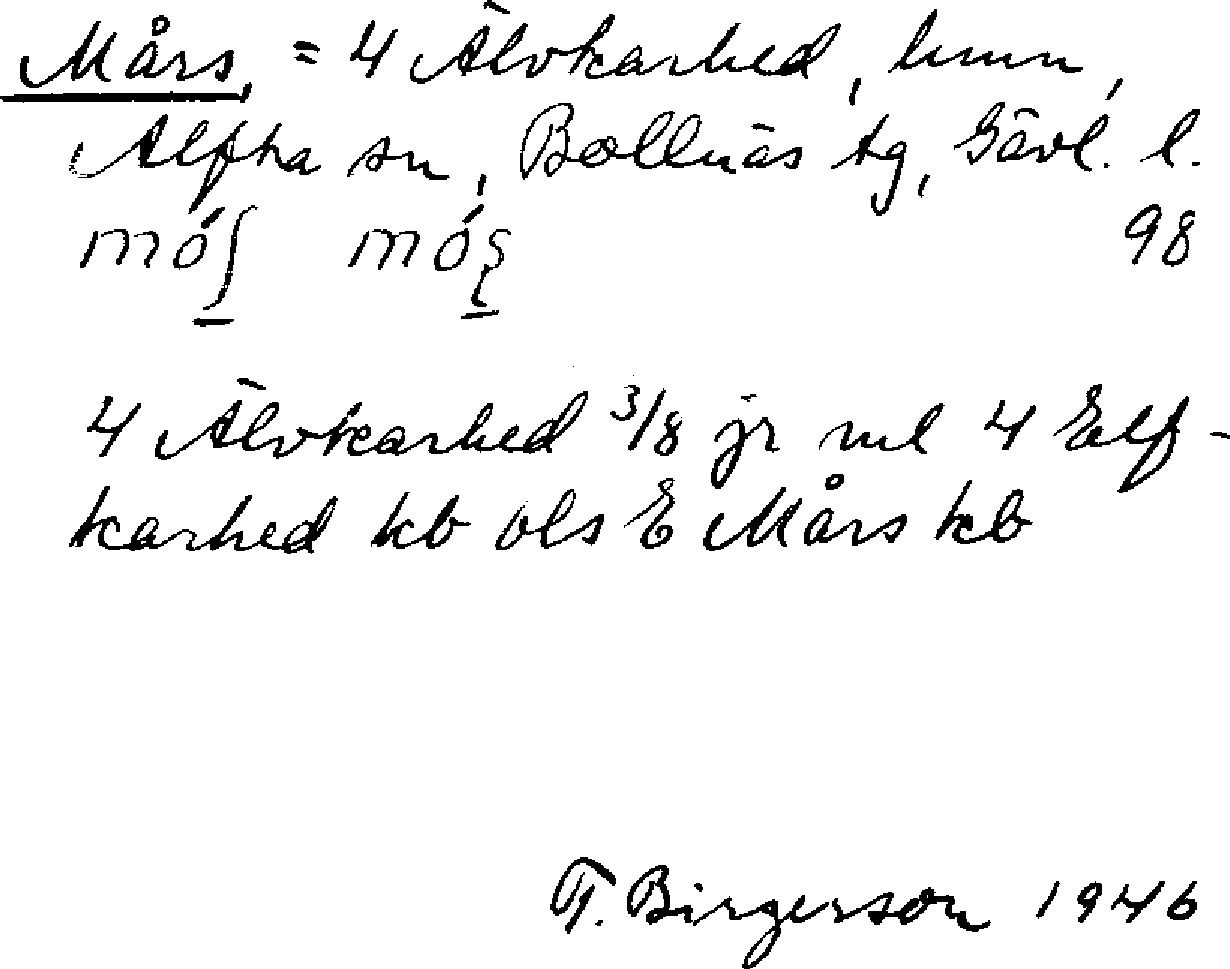 Mårs, = 4 Älvkarhed, hmn,
Alfta sn, Bollnäs tg, Gävl. l.
98
4 Älvkarhed 3/8 jr ml 4 Elf-
karhed kb ols E Mårs kb
T. Birgerson 1946